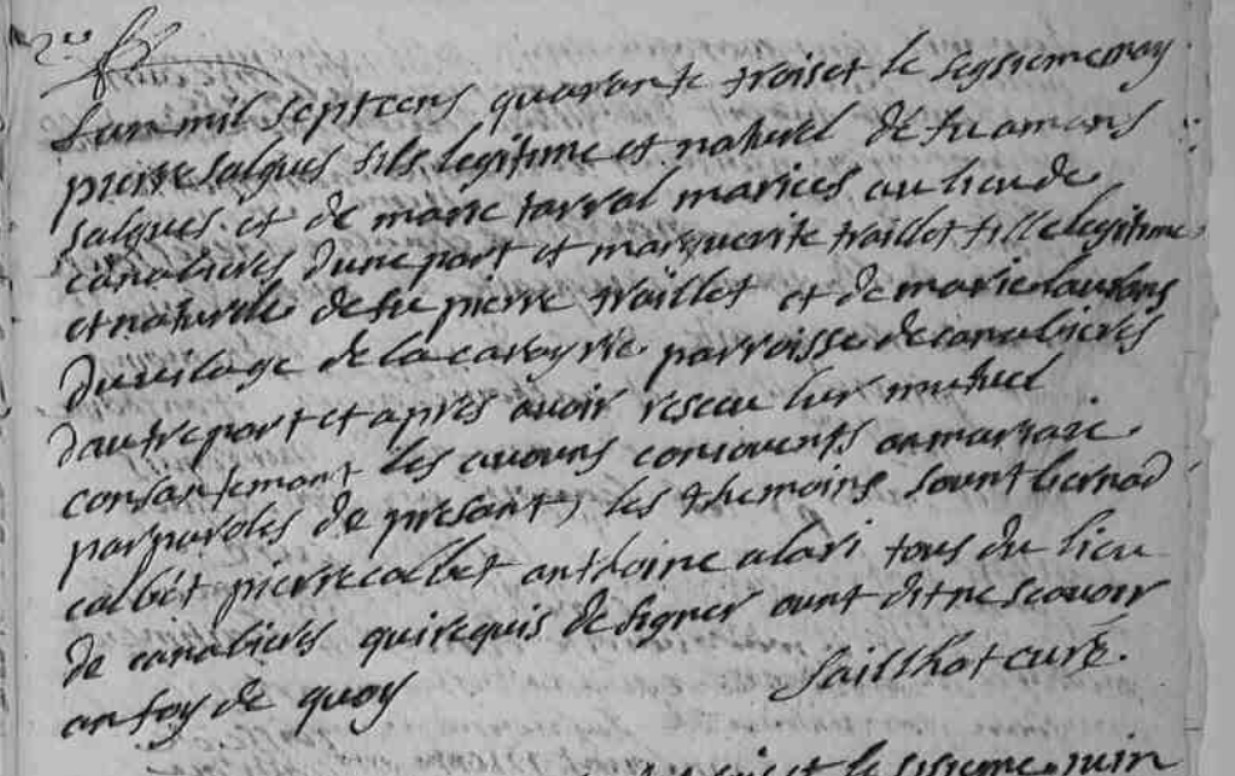 Lan mil sept cens quarante troiset le sesieme may
pierre salgues fils legitime et naturel de fu amans
salgues et de marie tarral mariees au lieu de
canabieres dune part et marguerite traillet fille legitime
et naturelle de fu pierre traillet et de marie
du vilage de la carayrie parroisse de canabieres
dautre part et apres avoir resceu lur mutuel
consantemant les avouns coniouents an mariaie
par paroles de presant, les themoins sount bernad
calbet pierre calbet anthoine alari tous du lieu
de canabieres qui requis de signer ount dit ne scavoir
an foy de quoy sailhhot curé.
et le sisieme juin